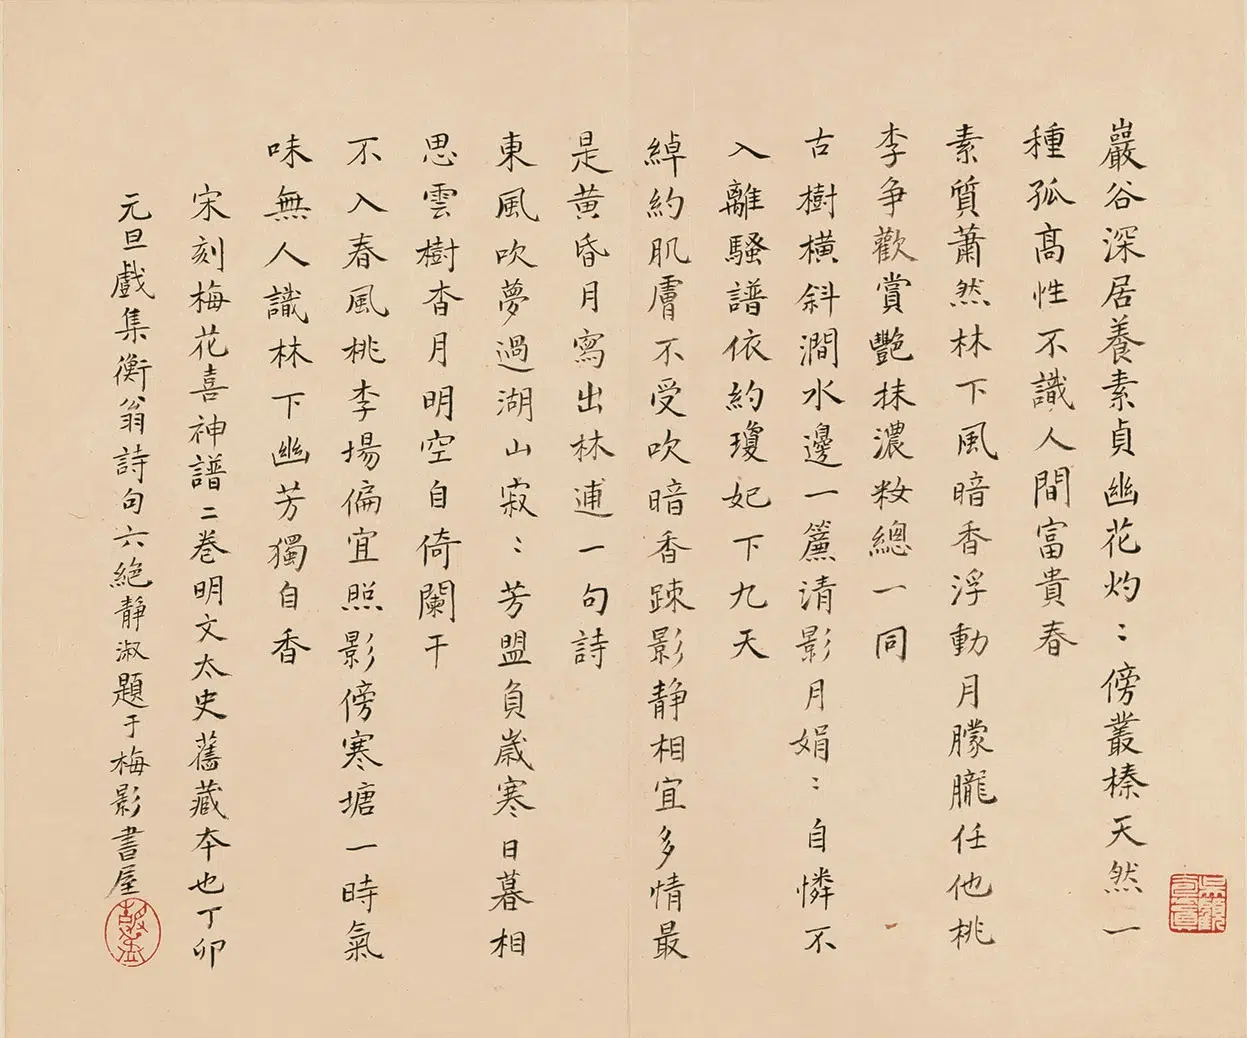 巖谷深居養素貞幽花灼：傍叢榛天然一
種孤高性不識人間富貴春
素質蕭然林下風暗香浮動月朦朧任他桃
李爭歡賞艷抹濃妝總一同
古樹橫斜澗水邊一簾清影月娟：自憐不
入離騷譜依約瓊妃下九天
綽約肌膚不受吹暗香踈影靜相宜多情最
是黃昏月寫出林逋一句詩
東風吹夢過湖山寂：芳盟負歲寒日暮相
思雲樹杳月明空自倚闌干
不入春風桃李場偏宜照影傍寒塘一時氣
味無人識林下幽芳獨自香
宋刻梅花喜神譜二卷明文太史舊藏本也丁卯
元旦戲集衡翁詩句六絕靜淑題于梅影書屋